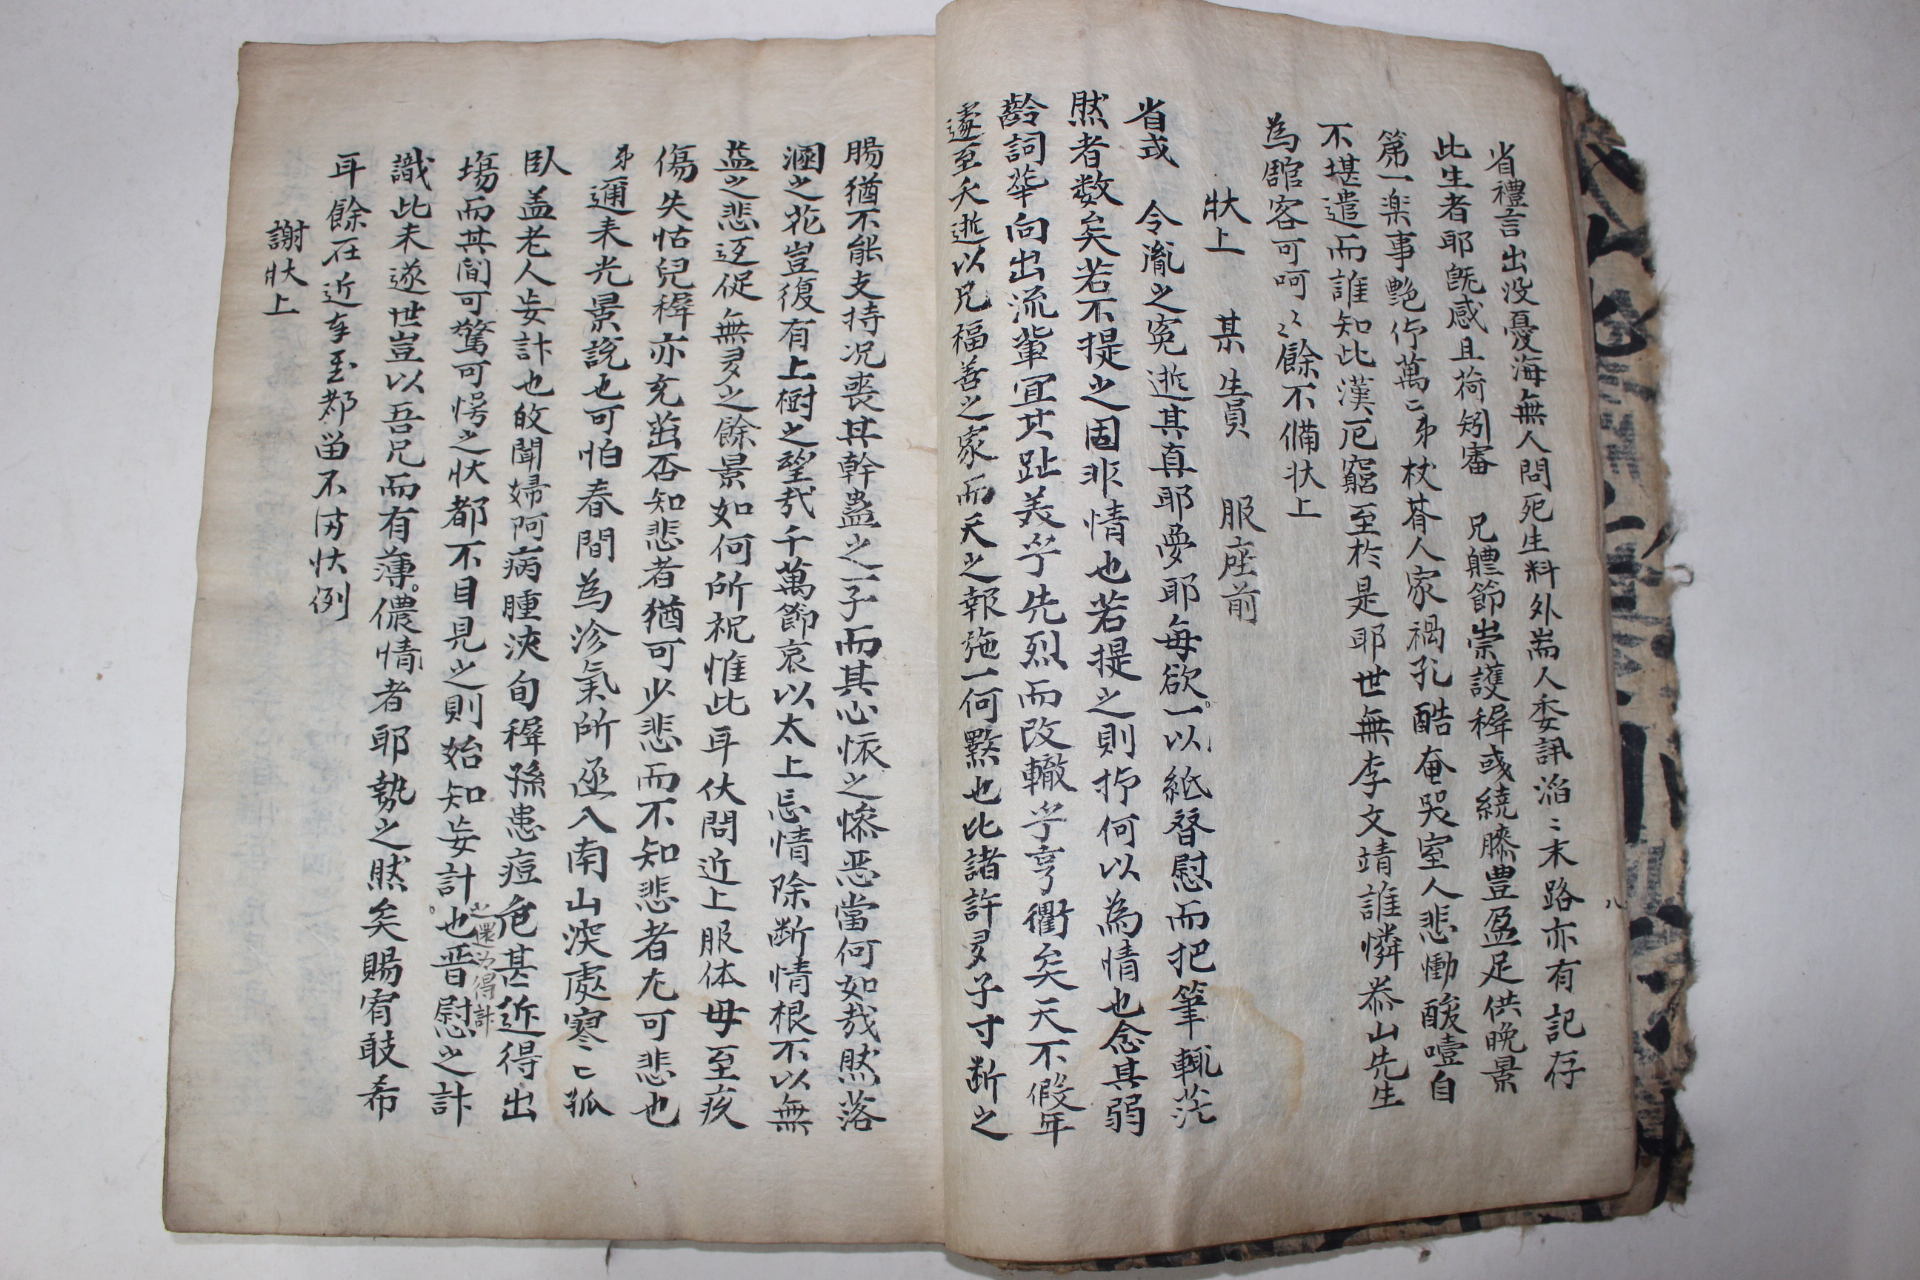 省禮言出没憂海無人問死生料外耑人委訊滔〻末路亦有記存
此生者耶既感且荷矧審 兄軆節崇護穉彧繞膝豊盈足供晩景
第一楽事艶仰萬〻弟杖朞人家禍孔酷奄哭室人悲慟酸噎自
不堪遣而誰知此漢厄窮至於是耶世無李文靖誰憐恭山先生
為館客可呵〻餘不備狀上
狀上 某生員 服座前
省或 令胤之寃逝其真耶夢耶每欲一以紙替慰而把筆輒茫
然者数矣若不提之固非情也若提之則抑何以為情也念其弱
齡詞華向出流輩宜其趾美乎先烈而改轍乎亨衢矣天不假年
遽至夭逝以兄福善之家而天之報施一何黙也比諸許多子寸断之
腸猶不能支持况喪其幹蠱之一子而其心懷之慘恶當何如哉然落
溷之花豈復有上樹之望㦲千萬節哀以太上忘情除断情根不以無
益之悲逕促無多之餘景如何所祝惟此耳伏問近上服体毋至疚
傷失怙兒穉亦充茁否知悲者猶可少悲而不知悲者尤可悲也
弟邇来光景説也可怕春間為沴氣所丞入南山深處寒〻孤
臥盖老人妄計也旼聞婦阿病腫浹旬穉孫患痘危甚近得出
塲而其間可驚可愕之状都不目見之則始知妄計
之還為得計
也晋慰之計
識此未遂世豈以吾兄而有薄儂情者耶勢之然矣賜宥敢希
耳餘在近奉至都留不偹狀例
謝狀上
八